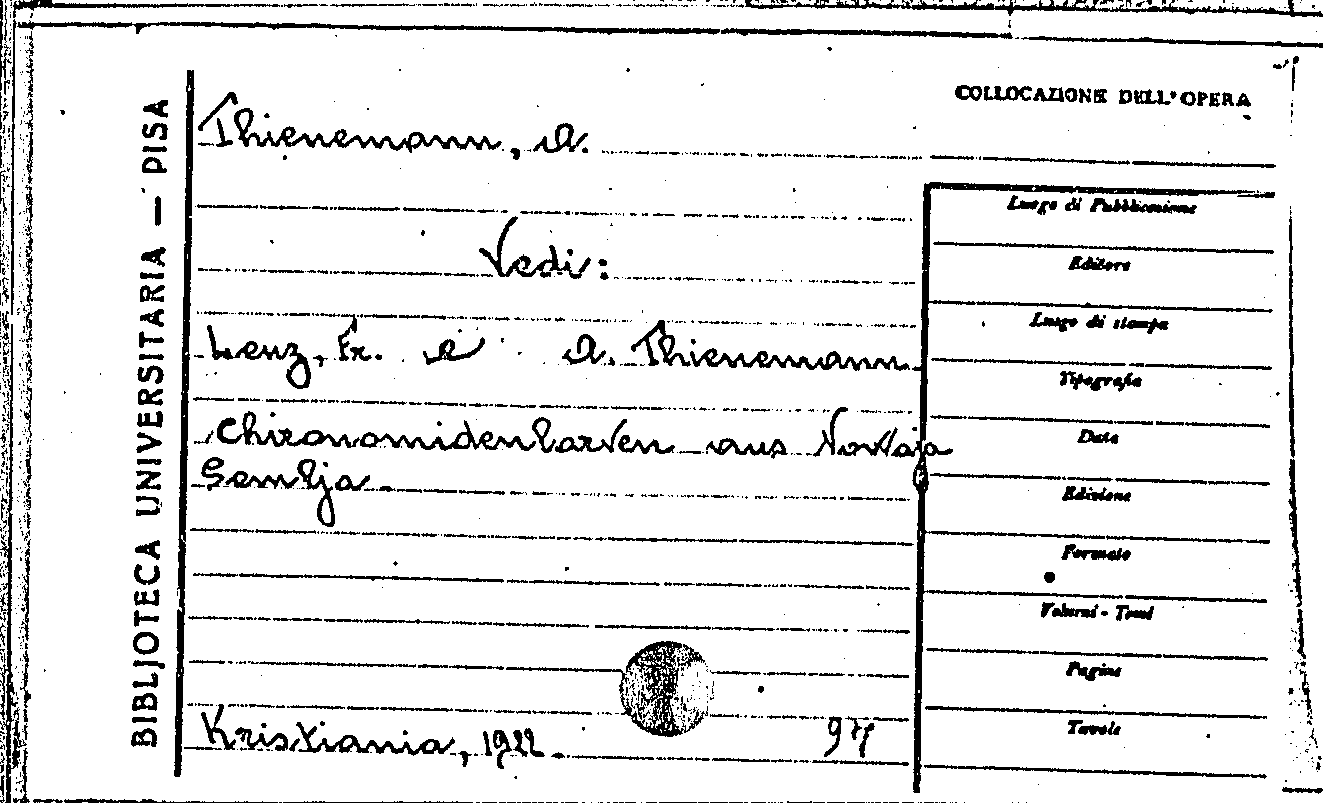 COLLOCAZIONE DELL'OPERA
BIBLIOTECA UNIVERSITARIA — PISA
Thienemann, A.
Vedi:
Lenz, Fr. e A. Thienemann
Chironomidenlarven aus Nowaja
Semlja.
Kristiania, 1922. 97
Luogo di Pubblicazione
Editore
Luogo di stampa
Tipografia
Data
Edizione
Formato
Volumi - Tomi
Pagine
Tavole